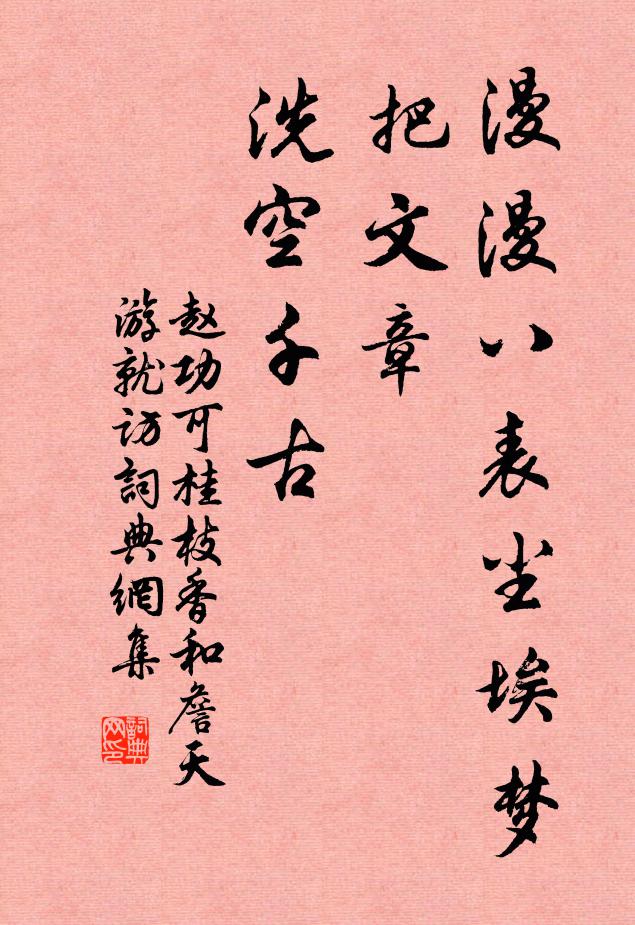 漫漫八表尘埃梦
把文章
洗空千古
赵功可桂枝香和詹天
游就访詞典網集
詞典網印